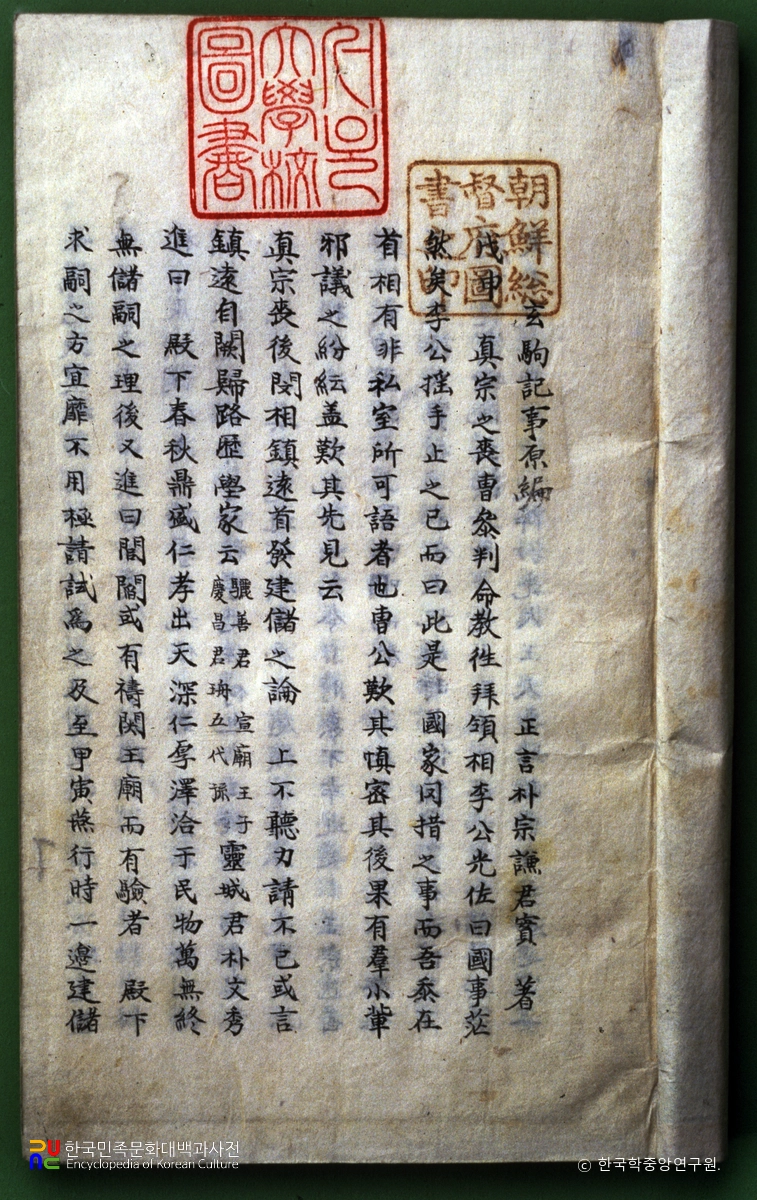 朝鮮総
督府圖
書之印
大學校
圖書
玄駒記事原編 正言朴宗謙君實 著
戊申 眞宗之喪曺叅判命教徃拜領相李公光佐曰國事茫
然矣李公揺手止之已而曰此是 國家罔措之事而吾忝在
首相有非私室所可語者也曺公歎其愼密其後果有羣小輩
邪議之紛紜盖歎其先見云
眞宗喪後閔相鎮遠首發建儲之論 上不聽力請不已或言
鎮遠自闕歸路歴 學家云 驪善君 宣廟王子 慶昌君珘五代孫 靈城君朴文秀
進曰 殿下春秋鼎盛仁孝出天深仁厚澤洽于民物萬無終
無儲嗣之理後又進曰閭閻或有禱関王廟而有驗者 殿下
求嗣之方宜靡不用極請試爲之及至甲寅燕行時一邊建儲
한국민족문화대백과사전
Encyclopedia of Korean Culture
© 한국학중앙연구원.